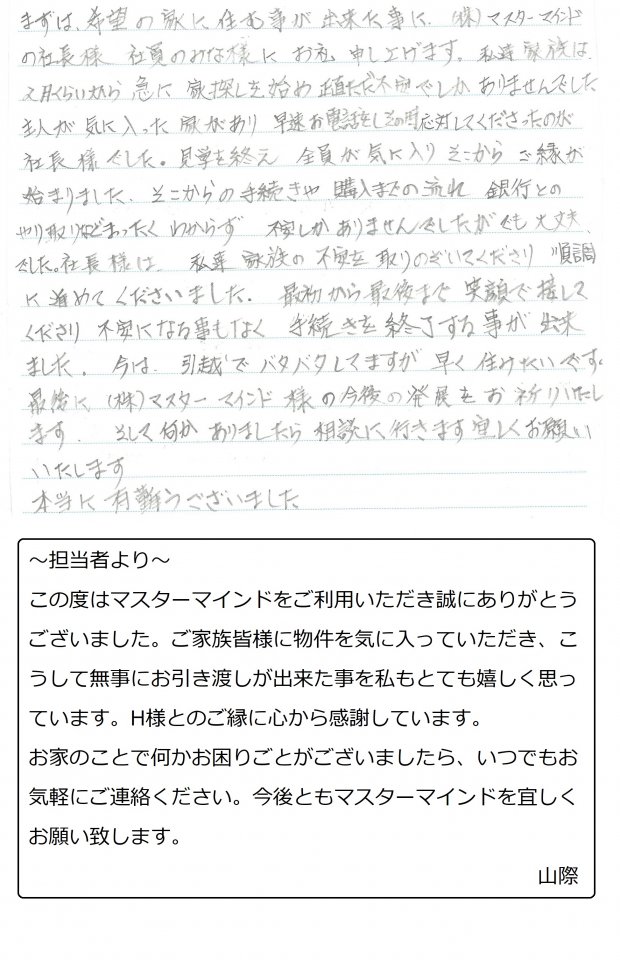 まずは、希望の家に住む事が出来た事に、(株)マスターマインド
の社長様 社員のみな様に お礼 申し上げます。私達 家族は
2月くらいから 急に 家探しを始め 正直ただ不安でしか ありませんでした
主人が 気に入った 家があり 早速お電話をし その時応対してくださったのが
社長様でした。見学を終え 全員が 気に入り そこから ご縁が
始まりました、そこからの手続きや 購入までの流れ 銀行との
やり取りなどまったく わからず 不安しかありませんでしたがでも 大丈夫
でした。社長様は、私達 家族の 不安を 取りのぞいてくださり 順調
に 進めて くださいました。最初から最後まで 笑顔で接して
くださり 不安になる事もなく 手続きを終了する事が 出来
ました。今は、引越しで バタバタしてますが 早く 住みたいです。
最後に (株)マスターマインド 様の今後の発展を お祈りいたし
ます。そして何か ありましたら 相談に行きます宜しくお願い
いたします
本当に 有難うございました
～担当者より～
この度はマスターマインドをご利用いただき誠にありがとう
ございました。ご家族皆様に物件を気に入っていただき、こ
うして無事にお引き渡しが出来た事を私もとても嬉しく思っ
ています。H様とのご縁に心から感謝しています。
お家のことで何かお困りごとがございましたら、いつでもお
気軽にご連絡ください。今後ともマスターマインドを宜しく
お願い致します。
山際